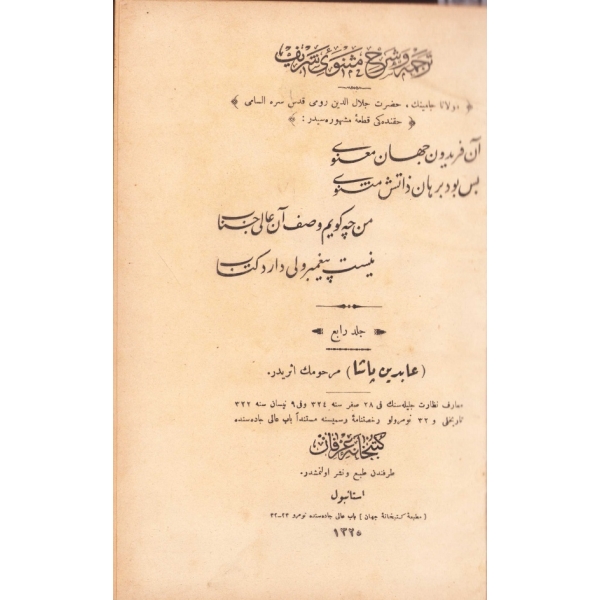 ترجمه و شرح مثنوئ شریف
﴿ مولانا جامینك ، حضرت جلال الدین رومی قدس سره السامی ﴾
﴿ حقنده کی قطعهٔ مشهوره سیدر : ﴾
آن فریدون جهان معنوی
بس بود برهان ذاتش مثنوی
من چه کویم وصف آن عالی جناب
نیست پیغمبر ولی دارد کتاب
جلد رابع
( عابدین پاشا ) مرحومك اثریدر .
معارف نظارت جلیله سنك فی ٢٨ صفر سنه ٣٢٤ وفی ٩ نیسان سنه ٣٢٢
تاریخلی و ٣٢ نومرولو رخصتنامهٔ رسمیسنه مستنداً باب عالی جاده سنده
کتبخانهٔ عرفان
طرفندن طبع و نشر اولنمشدر .
استانبول
( مطبعهٔ کتبخانهٔ جهان ) باب عالی جاده سنده نومرو
١٣٢٥